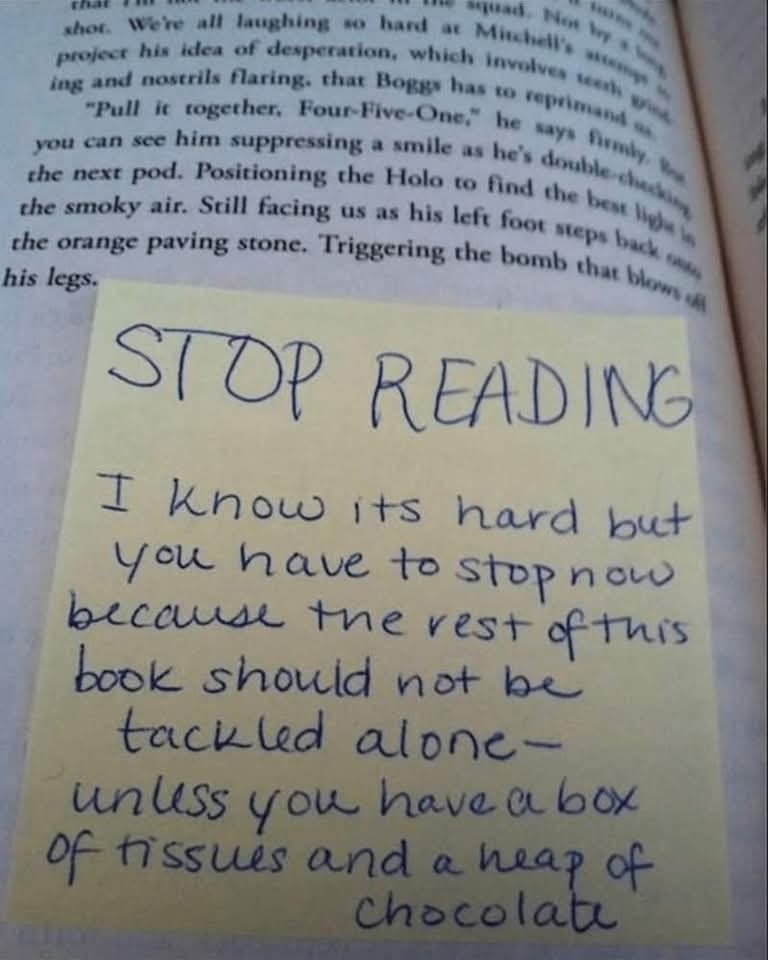 that I'm not the worst actor in the squad. Not by a long
shot. We're all laughing so hard at Mitchell's attempt to
project his idea of desperation, which involves teeth grind-
ing and nostrils flaring, that Boggs has to reprimand us.
"Pull it together, Four-Five-One," he says firmly. But
you can see him suppressing a smile as he's double-checking
the next pod. Positioning the Holo to find the best light in
the smoky air. Still facing us as his left foot steps back onto
the orange paving stone. Triggering the bomb that blows off
his legs.
STOP READING
I know its hard but
you have to stop now
because the rest of this
book should not be
tackled alone-
unless you have a box
of tissues and a heap of
chocolate